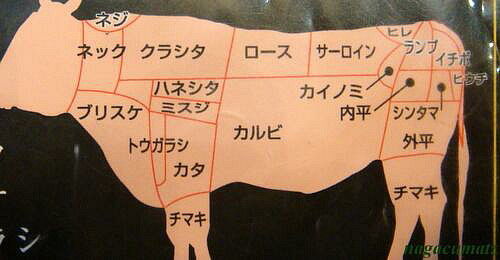 ネジ
ヒレ
ネック
クラシタ
ロース
サーロイン
ランプ
イチボ
ヒウチ
ハネシタ
カイノミ
ブリスケ
ミスジ
内平
シンタマ
カルビ
トウガラシ
外平
カタ
チマキ
チマキ
ラシ
nagacumatz